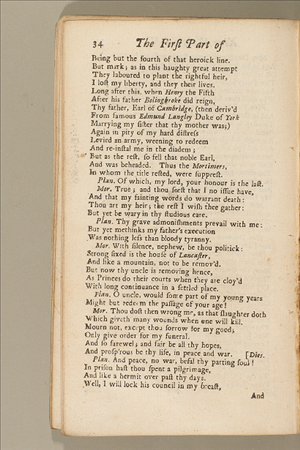 34 The Firſt Part of
Being but the fourth of that heroick line.
But mark; as in this haughty great attempt
They laboured to plant the rightful heir,
I loſt my liberty, and they their lives.
Long after this, when Henry the Fifth
After his father Bolingbroke did reign,
Thy father, Earl of Cambridge, (then deriv'd
From famous Edmund Langley Duke of York
Marrying my ſiſter that thy mother was;)
Again in pity of my hard diſtreſs
Levied an army, weening to redeem
And re-inſtal me in the diadem;
But as the reſt, ſo fell that noble Earl,
And was beheaded. Thus the Mortimers,
In whom the title reſted, were ſuppreſt.
Plan. Of which, my lord, your honour is the laſt.
Mor. True; and thou ſeeſt that I no iſſue have,
And that my fainting words do warrant death:
Thou art my heir; the reſt I wiſh thee gather:
But yet be wary in thy ſtudious care.
Plan. Thy grave admoniſhments prevail with me:
But yet methinks my father's execution
Was nothing leſs than bloody tyranny.
Mor. With ſilence, nephew, be thou politick:
Strong fixed is the houſe of Lancaſter,
And like a mountain, not to be remov'd.
But now thy uncle is removing hence,
As Princes do their courts when they are cloy'd
With long continuance in a ſettled place.
Plan. O uncle, would ſome part of my young years
Might but redeem the paſſage of your age!
Mor. Thou doſt then wrong me, as that ſlaughter doth
Which giveth many wounds when one will kill.
Mourn not, except thou ſorrow for my good;
Only give order for my funeral.
And ſo farewel; and fair be all thy hopes,
And proſp'rous be thy life, in peace and war. [Dies.
Plan. And peace, no war, befal thy parting ſoul!
In priſon haſt thou ſpent a pilgrimage,
And like a hermit over paſt thy days.
Well, I will lock his council in my breaſt,
And